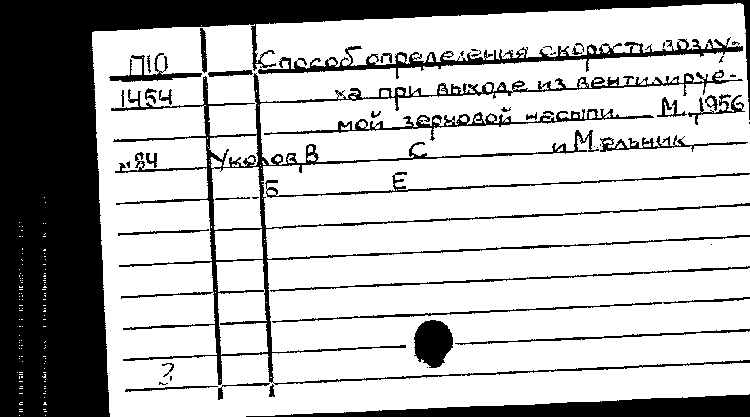 П10 Способ определения скорости возду-
1454 ха при выходе из вентилируе-
мой зерновой насыпи. М., 1956
№84 Уколов, В С и Мельник,
Б Е
3